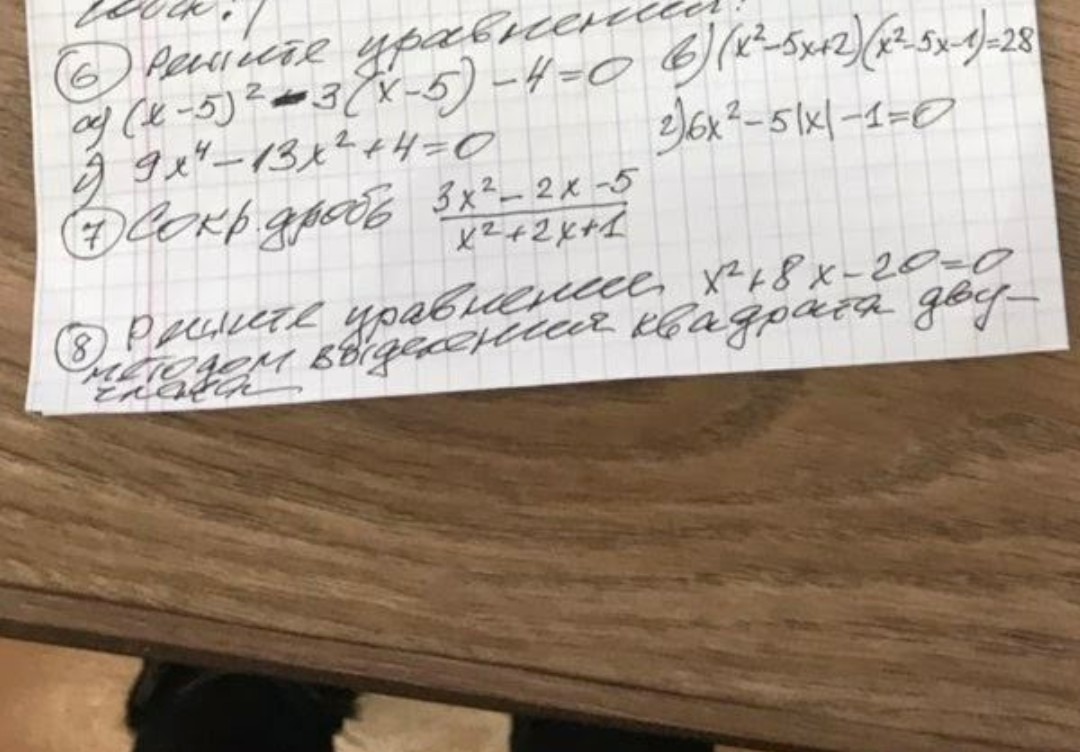 ⑥ Решите уравнения:
а) (x-5)² - 3(x-5) - 4 = 0 в) (x²-5x+2)(x²-5x-1)=28
б) 9x⁴ - 13x² + 4 = 0 г) 6x² - 5|x| - 1 = 0
⑦ Сокр. дробь (3x² - 2x - 5)/(x² + 2x + 1)
⑧ Решите уравнение x² + 8x - 20 = 0
методом выделения квадрата дву-
члена